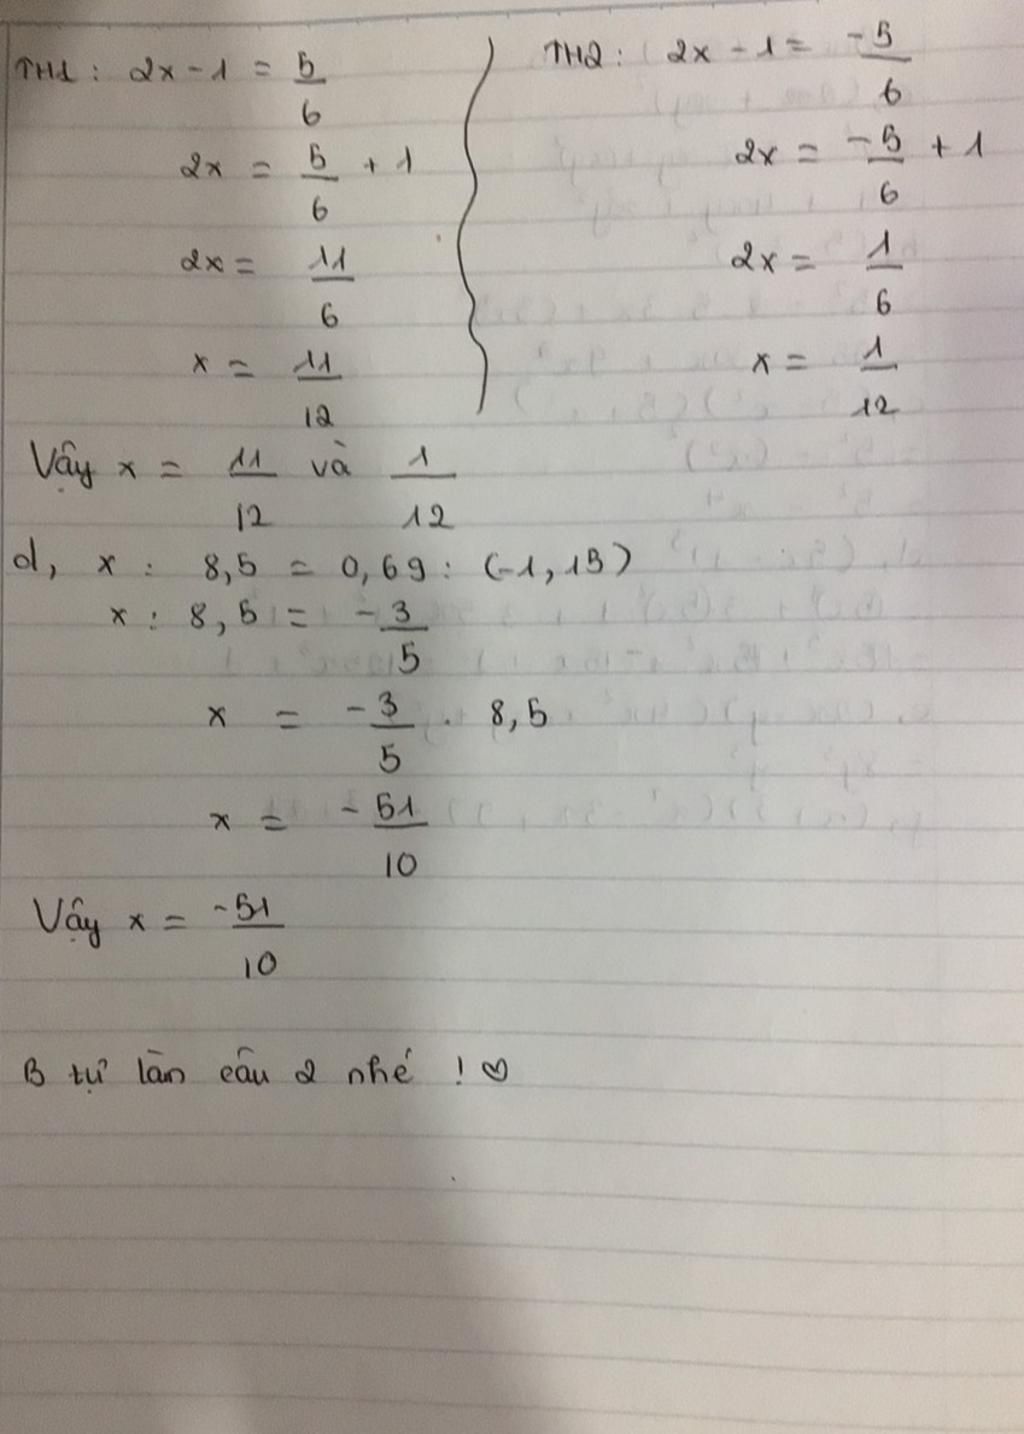 TH1 : 2x - 1 = 5/6
2x = 5/6 + 1
2x = 11/6
x = 11/12
TH2 : 2x - 1 = -5/6
2x = -5/6 + 1
2x = 1/6
x = 1/12
Vậy x = 11/12 và 1/12
d, x : 8,5 = 0,69 : (-1,15)
x : 8,5 = -3/5
x = -3/5 . 8,5
x = -51/10
Vậy x = -51/10
B tự làm câu 2 nhé ! ♡